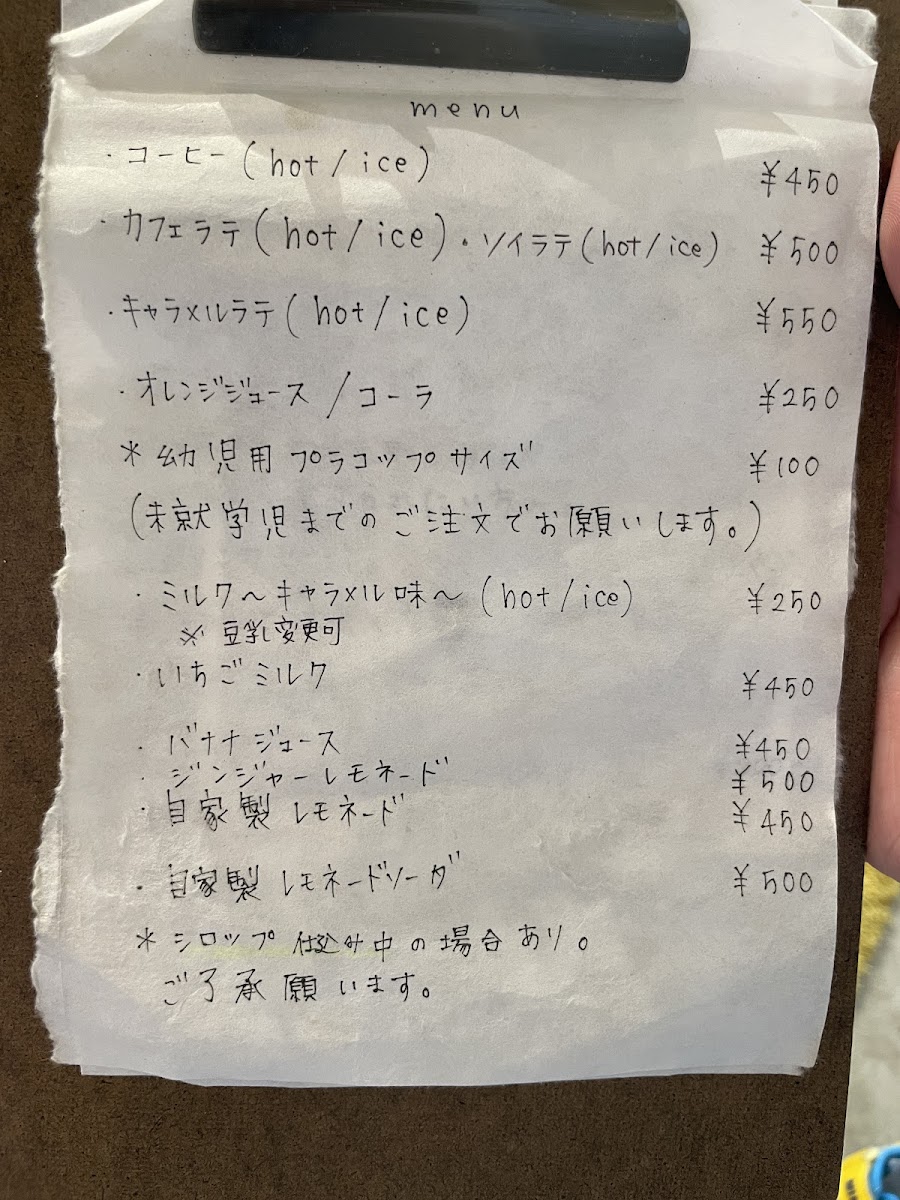 menu
・コーヒー(hot/ice) ¥450
・カフェラテ(hot/ice)・ソイラテ(hot/ice) ¥500
・キャラメルラテ(hot/ice) ¥550
・オレンジジュース/コーラ ¥250
＊幼児用プラコップサイズ ¥100
(未就学児までのご注文でお願いします。)
・ミルク〜キャラメル味〜(hot/ice) ¥250
※豆乳変更可
・いちごミルク ¥450
・バナナジュース ¥450
・ジンジャーレモネード ¥500
・自家製レモネード ¥450
・自家製レモネードソーダ ¥500
＊シロップ仕込み中の場合あり。
ご了承願います。